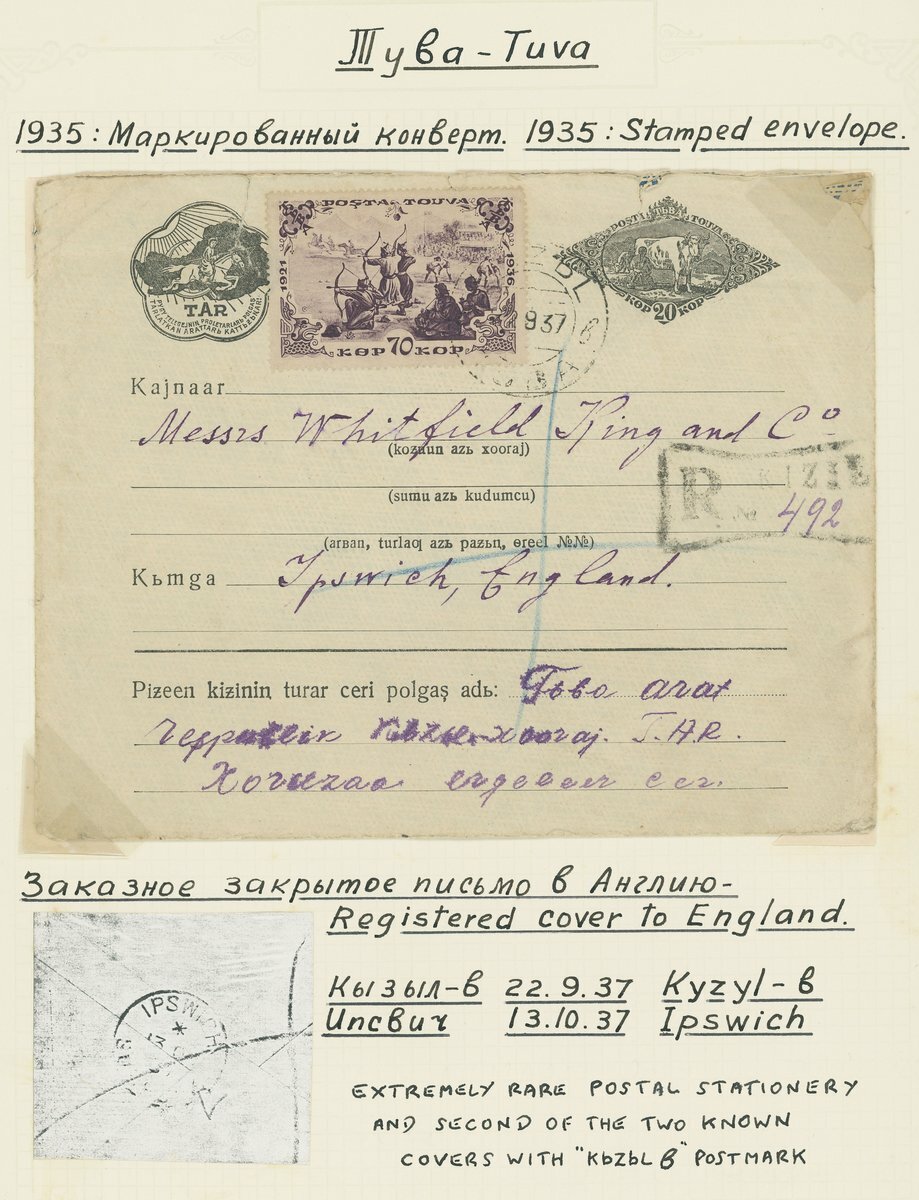 Тува - Tuva
1935: Маркированный конверт. 1935: Stamped envelope.
POSTA TOUVA
1921 1936
KɵP 70 KOP
TAR
POSTI TЬBA TOUVA
KOP 20 KOP
937
Kajnaar
Messrs Whitfield King and Co
(koƶuun azь xooraj)
(sumu azь kudumcu)
R KIZIL
№ 492
(arban, turlaq azь paƶьŋ, ɵreel №№)
Kьmga Ipswich, England.
Piƶeen kiƶiniŋ turar ceri polgaş adь: Tьba arat
xooraj. T.A.R.
Заказное закрытое письмо в Англию-
Registered cover to England.
IPSWICH
Кызыл-в 22.9.37 Kyzyl-в
Ипсвич 13.10.37 Ipswich
EXTREMELY RARE POSTAL STATIONERY
AND SECOND OF THE TWO KNOWN
COVERS WITH "KЬZЬL в" POSTMARK